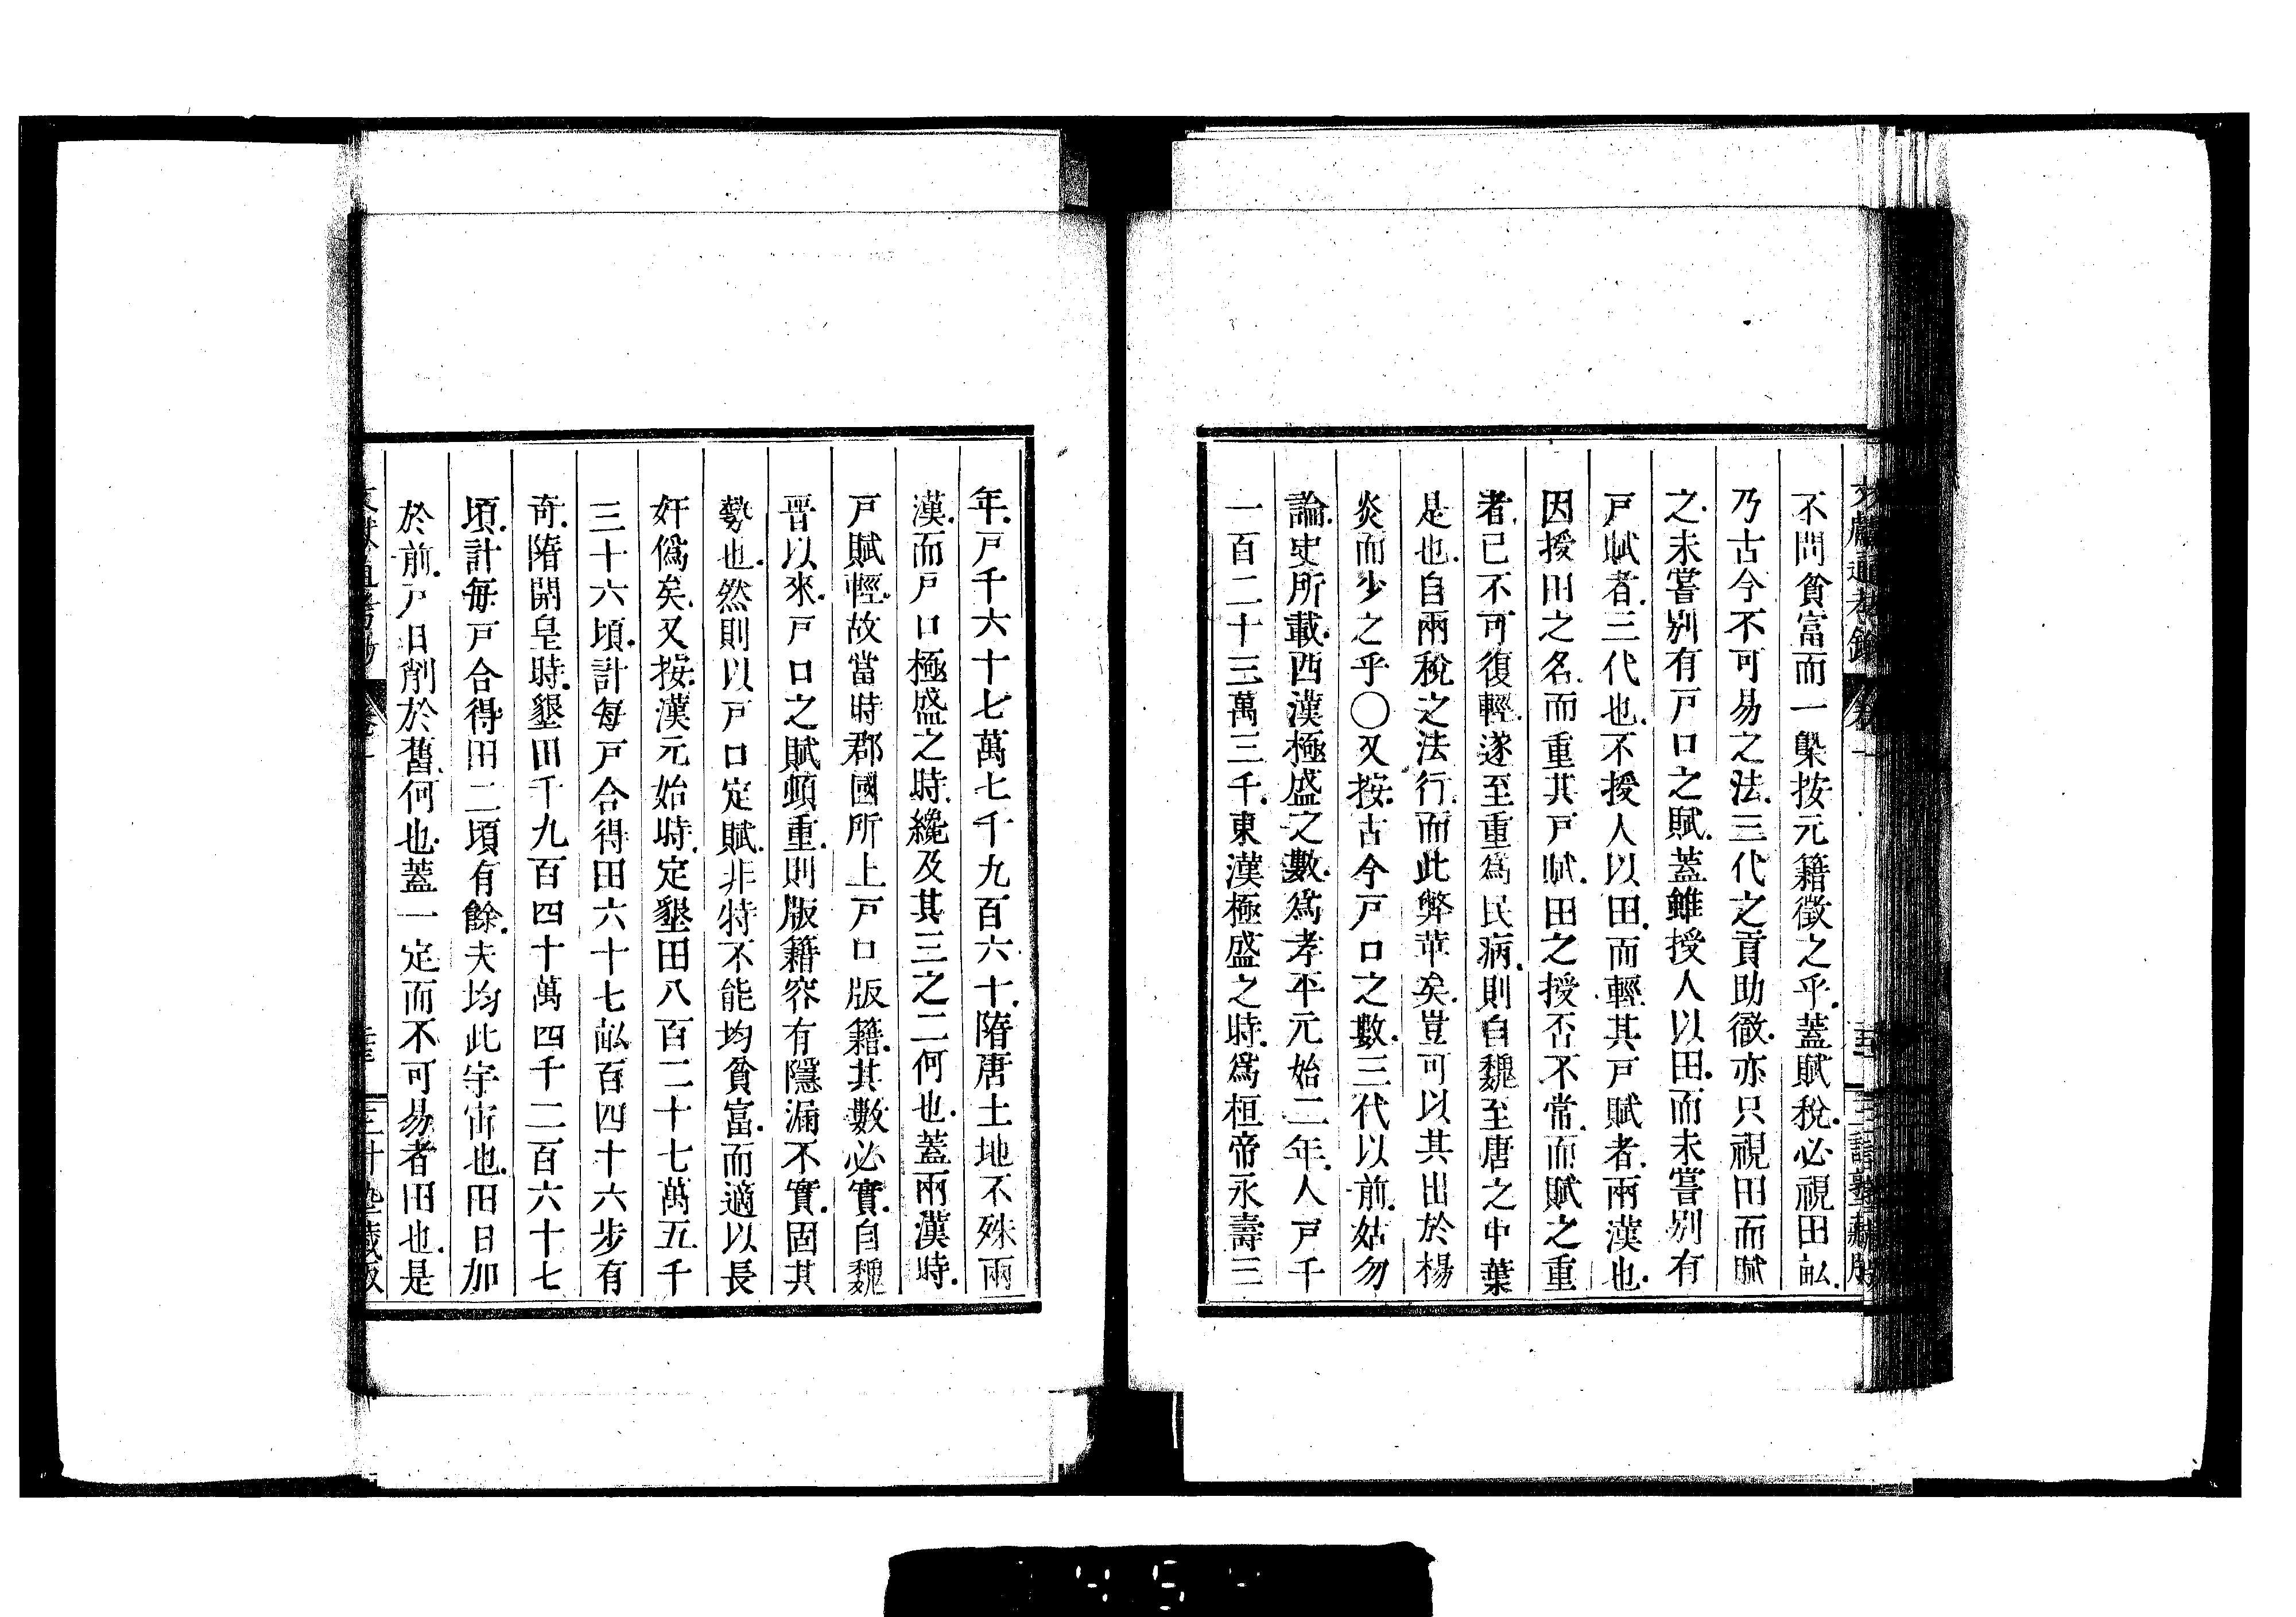 不問貧富而一槩按元籍徵之乎蓋賦稅必視田畝
乃古今不可易之法三代之貢助徹亦只視田而賦
之未嘗別有戸口之賦蓋雖授人以田而未嘗別有
戸賦者三代也不授人以田而輕其戸賦者兩漢也
因授田之名而重其戸賦田之授否不常而賦之重
者已不可復輕遂至重爲民病則自魏至唐之中葉
是也自兩稅之法行而此弊革矣豈可以其出於楊
炎而少之乎〇又按古今戸口之數三代以前姑勿
論史所載西漢極盛之數爲孝平元始二年人戸千
一百二十三萬三千東漢極盛之時爲桓帝永壽三
年戸千六十七萬七千九百六十隋唐土地不殊兩
漢而戸口極盛之時纔及其三之二何也蓋兩漢時
戸賦輕故當時郡國所上戸口版籍其數必實自魏
晋以來戸口之賦頓重則版籍容有隱漏不實固其
勢也然則以戸口定賦非特不能均貧富而適以長
奸僞矣又按漢元始時定墾田八百二十七萬五千
三十六頃計每戸合得田六十七畝百四十六步有
奇隋開皇時墾田千九百四十萬四千二百六十七
頃計每戸合得田二頃有餘夫均此宇宙也田日加
於前戸日削於舊何也蓋一定而不可易者田也是